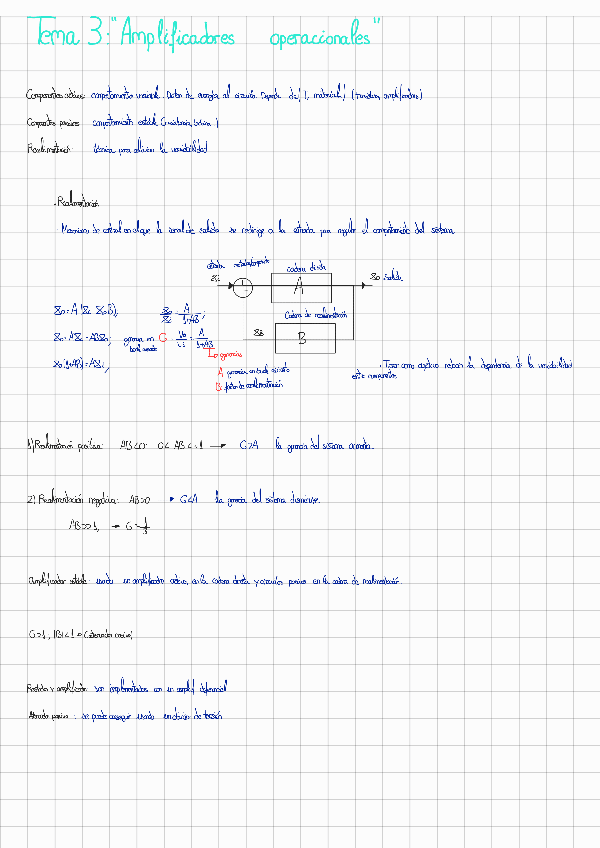 Tema 3: "Amplificadores operacionales"
Componentes activos: comportamiento variable. Dotan de energía al circuito. Depende de ( T, material ) (transistor, amplificadores)
Componentes pasivos: comportamiento estable (resistencia, bobina )
Realimentación: técnica para eliminar la variabilidad
. Realimentación
Mecanismo de control en el que la señal de salida se redirige a la entrada para regular el comportamiento del sistema
entrada
cadena directa
A
salida
Cadena de realimentación
B
ganancia en
G
ganancia
A: ganancia en
B: factor de realimentación
. Tiene como objetivo reducir la dependencia de la variabilidad
entre componentes
1) Realimentación positiva: AB<0 → G>A la ganancia del sistema aumenta.
2) Realimentación negativa: AB>0 → G<A la ganancia del sistema disminuye.
AB>>1,
Amplificador estable: usando un amplificador activo, en la cadena directa y circuitos pasivos en la cadena de realimentación.
G>1, |B|<1
son implementados con un amplif diferencial
Atenuador pasivo: se puede conseguir usando un divisor de tensión